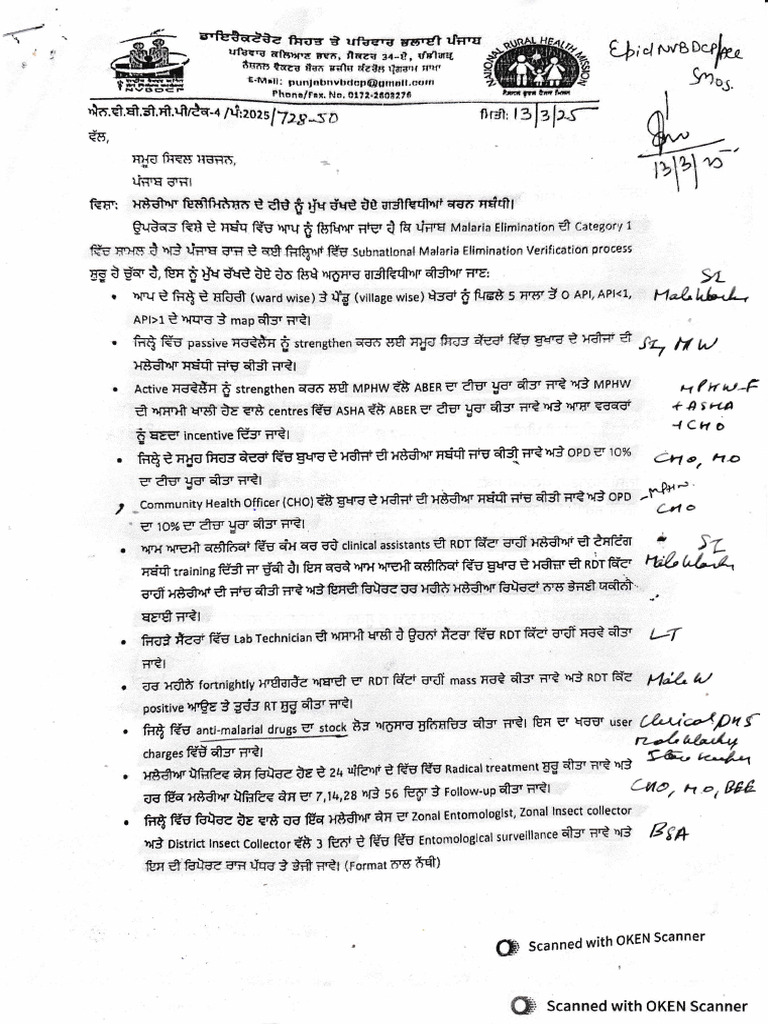 ਡਾਇਰੈਕਟੋਰੇਟ ਸਿਹਤ ਤੇ ਪਰਿਵਾਰ ਭਲਾਈ ਪੰਜਾਬ
ਪਰਿਵਾਰ ਕਲਿਆਣ ਭਵਨ, ਸੈਕਟਰ 34-ਏ, ਚੰਡੀਗੜ੍ਹ
ਨੈਸ਼ਨਲ ਵੈਕਟਰ ਬੋਰਨ ਡਜੀਜ ਕੰਟਰੋਲ ਪ੍ਰੋਗਰਾਮ ਸਾਖਾ
E-Mail: punjabnvbdcp@gmail.com
Phone/Fax. No. 0172-2608276
NVBDCP
NATIONAL RURAL HEALTH MISSION
Epid NVBDCP/
SMOs.
13/3/25
ਐਨ.ਵੀ.ਬੀ.ਡੀ.ਸੀ.ਪੀ/ਟੈਕ-4/ਪੰ:2025/728-50 ਮਿਤੀ: 13/3/25
ਵੱਲ,
ਸਮੂਹ ਸਿਵਲ ਸਰਜਨ,
ਪੰਜਾਬ ਰਾਜ।
ਵਿਸ਼ਾ: ਮਲੇਰੀਆ ਇਲੀਮਿਨੇਸ਼ਨ ਦੇ ਟੀਚੇ ਨੂੰ ਮੁੱਖ ਰੱਖਦੇ ਹੋਏ ਗਤੀਵਿਧੀਆਂ ਕਰਨ ਸਬੰਧੀ।
ਉਪਰੋਕਤ ਵਿਸ਼ੇ ਦੇ ਸਬੰਧ ਵਿੱਚ ਆਪ ਨੂੰ ਲਿਖਿਆ ਜਾਂਦਾ ਹੈ ਕਿ ਪੰਜਾਬ Malaria Elimination ਦੀ Category 1
ਵਿੱਚ ਸ਼ਾਮਲ ਹੈ ਅਤੇ ਪੰਜਾਬ ਰਾਜ ਦੇ ਕਈ ਜਿਲ੍ਹਿਆਂ ਵਿੱਚ Subnational Malaria Elimination Verification process
ਸ਼ੁਰੂ ਹੋ ਚੁੱਕਾ ਹੈ, ਇਸ ਨੂੰ ਮੁੱਖ ਰੱਖਦੇ ਹੋਏ ਹੇਠ ਲਿਖੇ ਅਨੁਸਾਰ ਗਤੀਵਿਧੀਆ ਕੀਤੀਆ ਜਾਣ:
• ਆਪ ਦੇ ਜਿਲ੍ਹੇ ਦੇ ਸ਼ਹਿਰੀ (ward wise) ਤੇ ਪੇਂਡੂ (village wise) ਖੇਤਰਾਂ ਨੂੰ ਪਿਛਲੇ 5 ਸਾਲਾ ਤੋਂ 0 API, API<1,
API>1 ਦੇ ਅਧਾਰ ਤੇ map ਕੀਤਾ ਜਾਵੇ।
SI
Male Worker
• ਜਿਲ੍ਹੇ ਵਿੱਚ passive ਸਰਵੇਲੈਂਸ ਨੂੰ strengthen ਕਰਨ ਲਈ ਸਮੂਹ ਸਿਹਤ ਕੇਂਦਰਾਂ ਵਿੱਚ ਬੁਖਾਰ ਦੇ ਮਰੀਜਾਂ ਦੀ
ਮਲੇਰੀਆ ਸਬੰਧੀ ਜਾਂਚ ਕੀਤੀ ਜਾਵੇ।
SI, MW
• Active ਸਰਵੇਲੈਂਸ ਨੂੰ strengthen ਕਰਨ ਲਈ MPHW ਵੱਲੋਂ ABER ਦਾ ਟੀਚਾ ਪੂਰਾ ਕੀਤਾ ਜਾਵੇ ਅਤੇ MPHW
ਦੀ ਅਸਾਮੀ ਖਾਲੀ ਹੋਣ ਵਾਲੇ centres ਵਿੱਚ ASHA ਵੱਲੋਂ ABER ਦਾ ਟੀਚਾ ਪੂਰਾ ਕੀਤਾ ਜਾਵੇ ਅਤੇ ਆਸ਼ਾ ਵਰਕਰਾਂ
ਨੂੰ ਬਣਦਾ incentive ਦਿੱਤਾ ਜਾਵੇ।
MPHW-F
+ ASHA
+ CHO
• ਜਿਲ੍ਹੇ ਦੇ ਸਮੂਹ ਸਿਹਤ ਕੇਦਰਾਂ ਵਿੱਚ ਬੁਖਾਰ ਦੇ ਮਰੀਜਾਂ ਦੀ ਮਲੇਰੀਆ ਸਬੰਧੀ ਜਾਂਚ ਕੀਤੀ ਜਾਵੇ ਅਤੇ OPD ਦਾ 10%
ਦਾ ਟੀਚਾ ਪੂਰਾ ਕੀਤਾ ਜਾਵੇ।
CHO, MO
• Community Health Officer (CHO) ਵੱਲੋਂ ਬੁਖਾਰ ਦੇ ਮਰੀਜਾਂ ਦੀ ਮਲੇਰੀਆ ਸਬੰਧੀ ਜਾਂਚ ਕੀਤੀ ਜਾਵੇ ਅਤੇ OPD
ਦਾ 10% ਦਾ ਟੀਚਾ ਪੂਰਾ ਕੀਤਾ ਜਾਵੇ।
MPHW
CHO
• ਆਮ ਆਦਮੀ ਕਲੀਨਿਕਾਂ ਵਿੱਚ ਕੰਮ ਕਰ ਰਹੇ clinical assistants ਦੀ RDT ਕਿੱਟਾ ਰਾਹੀਂ ਮਲੇਰੀਆਂ ਦੀ ਟੈਸਟਿੰਗ
ਸਬੰਧੀ training ਦਿੱਤੀ ਜਾ ਚੁੱਕੀ ਹੈ। ਇਸ ਕਰਕੇ ਆਮ ਆਦਮੀ ਕਲੀਨਿਕਾਂ ਵਿੱਚ ਬੁਖਾਰ ਦੇ ਮਰੀਜ਼ਾ ਦੀ RDT ਕਿੱਟਾ
ਰਾਹੀਂ ਮਲੇਰੀਆਂ ਦੀ ਜਾਂਚ ਕੀਤੀ ਜਾਵੇ ਅਤੇ ਇਸਦੀ ਰਿਪੋਰਟ ਹਰ ਮਹੀਨੇ ਮਲੇਰੀਆ ਰਿਪੋਰਟਾਂ ਨਾਲ ਭੇਜਣੀ ਯਕੀਨੀ
ਬਣਾਈ ਜਾਵੇ।
SI
Male Worker
• ਜਿਹੜੇ ਸੈਂਟਰਾਂ ਵਿੱਚ Lab Technician ਦੀ ਅਸਾਮੀ ਖਾਲੀ ਹੈ ਉਹਨਾਂ ਸੈਂਟਰਾ ਵਿੱਚ RDT ਕਿੱਟਾਂ ਰਾਹੀਂ ਸਰਵੇ ਕੀਤਾ
ਜਾਵੇ।
LT
• ਹਰ ਮਹੀਨੇ fortnightly ਮਾਈਗਰੈਂਟ ਅਬਾਦੀ ਦਾ RDT ਕਿੱਟਾਂ ਰਾਹੀਂ mass ਸਰਵੇ ਕੀਤਾ ਜਾਵੇ ਅਤੇ RDT ਕਿੱਟ
positive ਆਉਣ ਤੇ ਤੁਰੰਤ RT ਸ਼ੁਰੂ ਕੀਤਾ ਜਾਵੇ।
Male W
• ਜਿਲ੍ਹੇ ਵਿੱਚ anti-malarial drugs ਦਾ stock ਲੋੜ ਅਨੁਸਾਰ ਸੁਨਿਸ਼ਚਿਤ ਕੀਤਾ ਜਾਵੇ। ਇਸ ਦਾ ਖਰਚਾ user
charges ਵਿੱਚੋਂ ਕੀਤਾ ਜਾਵੇ।
Clerical DHS
Male Worker
Store Keeper
• ਮਲੇਰੀਆ ਪੋਜ਼ਿਟਿਵ ਕੇਸ ਰਿਪੋਰਟ ਹੋਣ ਦੇ 24 ਘੰਟਿਆਂ ਦੇ ਵਿੱਚ ਵਿੱਚ Radical treatment ਸ਼ੁਰੂ ਕੀਤਾ ਜਾਵੇ ਅਤੇ
ਹਰ ਇੱਕ ਮਲੇਰੀਆ ਪੋਜ਼ਿਟਿਵ ਕੇਸ ਦਾ 7,14,28 ਅਤੇ 56 ਦਿਨ੍ਹਾ ਤੇ Follow-up ਕੀਤਾ ਜਾਵੇ।
CHO, MO, BEE
• ਜਿਲ੍ਹੇ ਵਿੱਚ ਰਿਪੋਰਟ ਹੋਣ ਵਾਲੇ ਹਰ ਇੱਕ ਮਲੇਰੀਆ ਕੇਸ ਦਾ Zonal Entomologist, Zonal Insect collector
ਅਤੇ District Insect Collector ਵੱਲੋਂ 3 ਦਿਨਾਂ ਦੇ ਵਿੱਚ ਵਿੱਚ Entomological surveillance ਕੀਤਾ ਜਾਵੇ ਅਤੇ
ਇਸ ਦੀ ਰਿਪੋਰਟ ਰਾਜ ਪੱਧਰ ਤੇ ਭੇਜੀ ਜਾਵੇ। (Format ਨਾਲ ਨੱਥੀ)
BSA
Scanned with OKEN Scanner
Scanned with OKEN Scanner